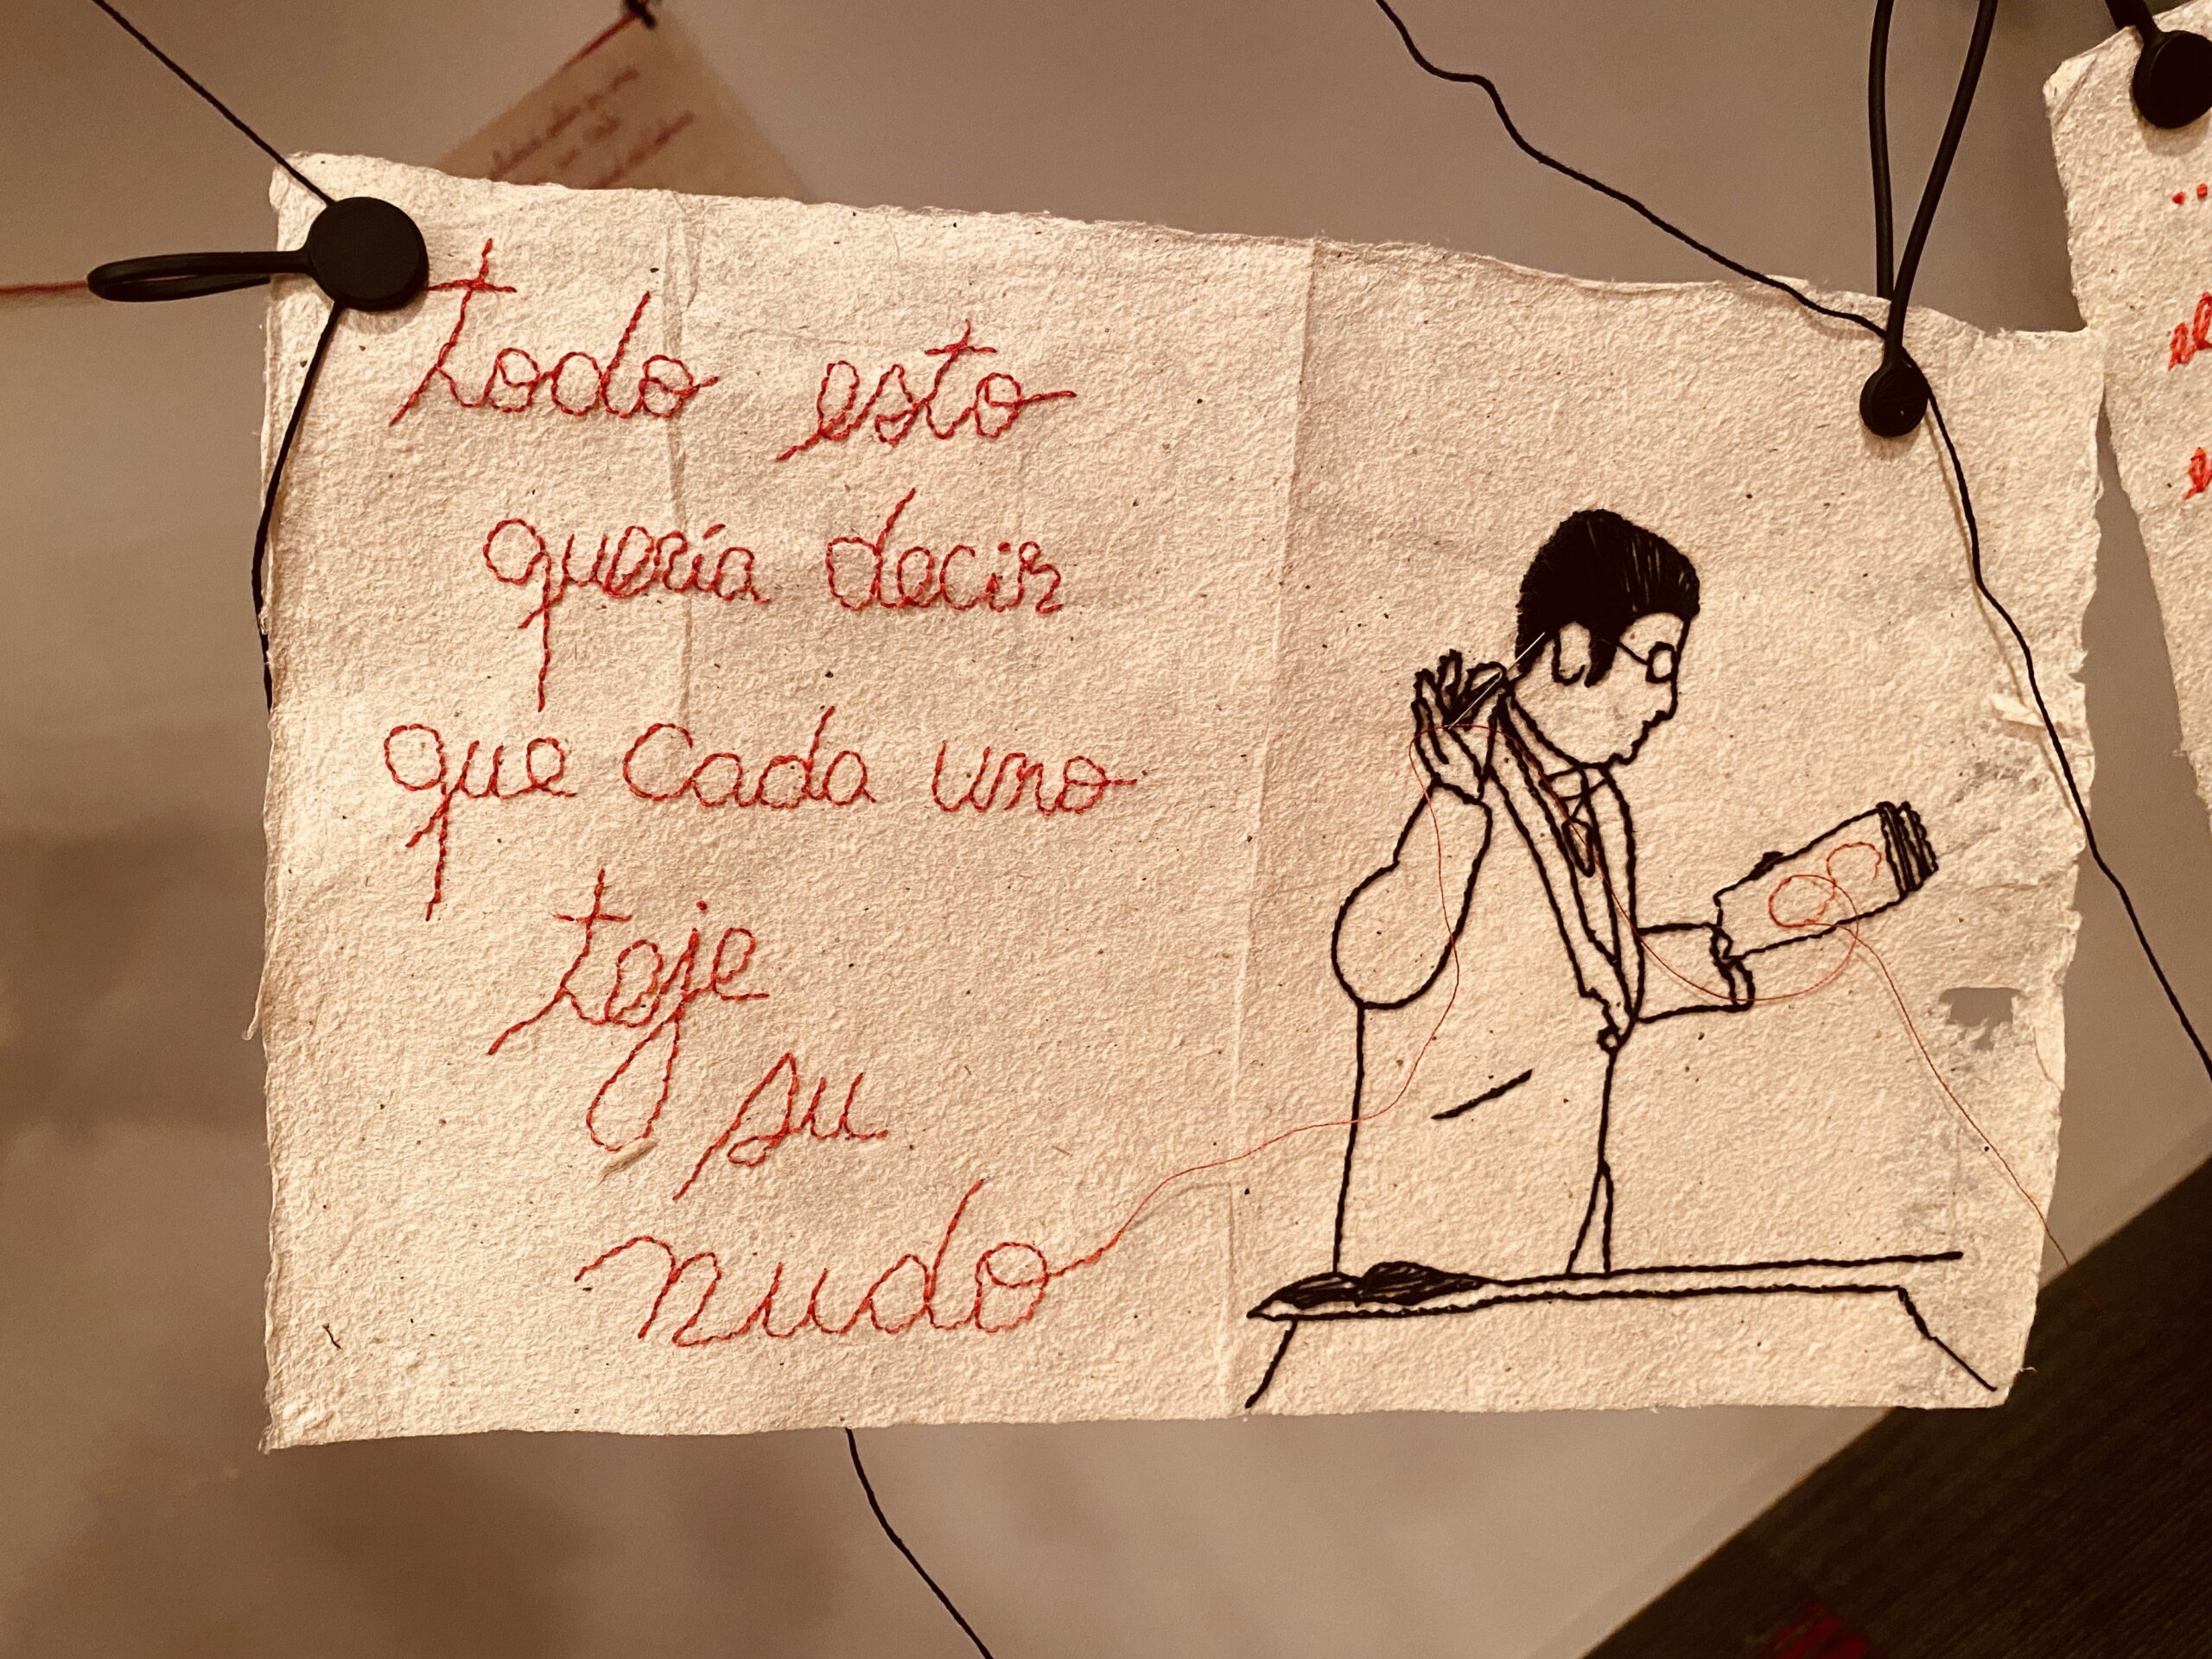 todo esto
quería decir
que cada uno
teje
su
nudo